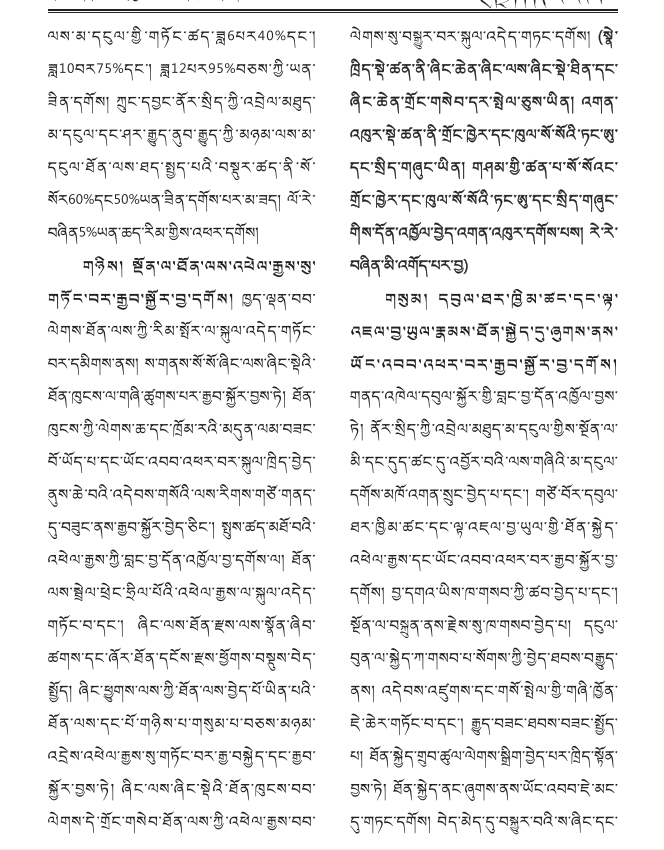 ལས་མ་དངུལ་གྱི་གཏོང་ཚད་ཟླ6པར40%དང་།
ཟླ10བར75%དང་། ཟླ12པར95%བཅས་ཀྱི་ཡན་
ཟིན་དགོས། ཀྲུང་དབྱང་ནོར་སྲིད་ཀྱི་འབྲེལ་མཐུད་
མ་དངུལ་དང་ཤར་རྒྱུད་ནུབ་རྒྱུད་ཀྱི་མཉམ་ལས་མ་
དངུལ་ཐོན་ལས་ཐད་སྤྱད་པའི་བསྡུར་ཚད་ནི་སོ་
སོར60%དང50%ཡན་ཟིན་དགོས་པར་མ་ཟད། ལོ་རེ་
བཞིན5%ཡན་ཆད་རིམ་གྱིས་འཕར་དགོས།
གཉིས། སྔོན་ལ་ཐོན་ལས་འཕེལ་རྒྱས་སུ་
གཏོང་བར་རྒྱབ་སྐྱོར་བྱ་དགོས། ཁྱད་ལྡན་བབ་
ལེགས་ཐོན་ལས་ཀྱི་རིམ་སྤོར་ལ་སྐུལ་འདེད་གཏོང་
བར་དམིགས་ནས། ས་གནས་སོ་སོ་ཞིང་ལས་ཞིང་སྡེའི་
ཐོན་ཁུངས་ལ་གཞི་ཚུགས་པར་རྒྱབ་སྐྱོར་བྱས་ཏེ། ཐོན་
ཁུངས་ཀྱི་ལེགས་ཆ་དང་ཁྲོམ་རའི་མདུན་ལམ་བཟང་
པོ་ཡོད་པ་དང་ཡོང་འབབ་འཕར་བར་སྐུལ་ཁྲིད་བྱེད་
ནུས་ཆེ་བའི་འདེབས་གསོའི་ལས་རིགས་གཙོ་གནད་
དུ་བཟུང་ནས་རྒྱབ་སྐྱོར་བྱེད་ཅིང་། སྤུས་ཚད་མཐོ་བའི་
འཕེལ་རྒྱས་ཀྱི་བླང་བྱ་དོན་འཁྱོལ་བྱ་དགོས་ལ། ཐོན་
ལས་སྦྲེལ་ཕྲེང་ཧྲིལ་པོའི་འཕེལ་རྒྱས་ལ་སྐུལ་འདེད་
གཏོང་བ་དང་། ཞིང་ལས་ཐོན་རྫས་ལས་སྣོན་ཞིབ་
ཚགས་དང་ཞོར་ཐོན་དངོས་རྫས་ཕྱོགས་བསྡུས་བེད་
སྤྱོད། ཞིང་ཕྱུགས་ལས་ཀྱི་ཐོན་ལས་བྱེད་པོ་ཡིན་པའི་
ཐོན་ལས་དང་པོ་གཉིས་པ་གསུམ་པ་བཅས་མཉམ་
འདྲེས་འཕེལ་རྒྱས་སུ་གཏོང་བར་རྒྱ་བསྐྱེད་དང་རྒྱབ་
སྐྱོར་བྱས་ཏེ། ཞིང་ལས་ཞིང་སྡེའི་ཐོན་ཁུངས་བབ་
ལེགས་དེ་གྲོང་གསེབ་ཐོན་ལས་ཀྱི་འཕེལ་རྒྱས་བབ་
ལེགས་སུ་བསྒྱུར་བར་སྐུལ་འདེད་གཏང་དགོས། (སྣེ་
ཁྲིད་སྡེ་ཚན་ནི་ཞིང་ཆེན་ཞིང་ལས་ཞིང་སྡེ་ཐིན་དང་
ཞིང་ཆེན་གྲོང་གསེབ་དར་སྤེལ་ཅུས་ཡིན། འགན་
འཁུར་སྡེ་ཚན་ནི་གྲོང་ཁྱེར་དང་ཁུལ་སོ་སོའི་ཏང་ཨུ་
དང་སྲིད་གཞུང་ཡིན། གཤམ་གྱི་ཚན་པ་སོ་སོའང་
གྲོང་ཁྱེར་དང་ཁུལ་སོ་སོའི་ཏང་ཨུ་དང་སྲིད་གཞུང་
གིས་དོན་འཁྱོལ་བྱེད་འགན་འཁུར་དགོས་པས། རེ་རེ་
བཞིན་མི་འགོད་པར་བྱ)
གསུམ། དབུལ་ཐར་ཁྱིམ་ཚང་དང་ལྟ་
འཇལ་བྱ་ཡུལ་རྣམས་ཐོན་སྐྱེད་དུ་ཞུགས་ནས་
ཡོང་འབབ་འཕར་བར་རྒྱབ་སྐྱོར་བྱ་དགོས།
གནད་འཁེལ་དབུལ་སྐྱོར་གྱི་བླང་བྱ་དོན་འཁྱོལ་བྱས་
ཏེ། ནོར་སྲིད་ཀྱི་འབྲེལ་མཐུད་མ་དངུལ་གྱིས་སྔོན་ལ་
མི་དང་དུད་ཚང་དུ་འབྱོར་བའི་ལས་གཞིའི་མ་དངུལ་
དགོས་མཁོ་འགན་སྲུང་བྱེད་པ་དང་། གཙོ་བོར་དབུལ་
ཐར་ཁྱིམ་ཚང་དང་ལྟ་འཇལ་བྱ་ཡུལ་གྱི་ཐོན་སྐྱེད་
འཕེལ་རྒྱས་དང་ཡོང་འབབ་འཕར་བར་རྒྱབ་སྐྱོར་བྱ་
དགོས། བྱ་དགའ་ཡིས་ཁ་གསབ་ཀྱི་ཚབ་བྱེད་པ་དང་།
སྔོན་ལ་བསྐྲུན་ནས་རྗེས་སུ་ཁ་གསབ་བྱེད་པ། དངུལ་
བུན་ལ་སྐྱེད་ཀ་གསབ་པ་སོགས་ཀྱི་བྱེད་ཐབས་བརྒྱུད་
ནས། འདེབས་འཛུགས་དང་གསོ་སྤེལ་གྱི་གཞི་ཁྱོན་
ཇེ་ཆེར་གཏོང་བ་དང་། རྒྱུད་བཟང་ཐབས་བཟང་སྤྱོད་
པ། ཐོན་སྐྱེད་གྲུབ་ཚུལ་ལེགས་སྒྲིག་བྱེད་པར་ཁྲིད་སྟོན་
བྱས་ཏེ། ཐོན་སྐྱེད་ནང་ཞུགས་ནས་ཡོང་འབབ་ཇེ་མང་
དུ་གཏང་དགོས། བེད་མེད་དུ་བསྐྱུར་བའི་ས་ཞིང་དང་